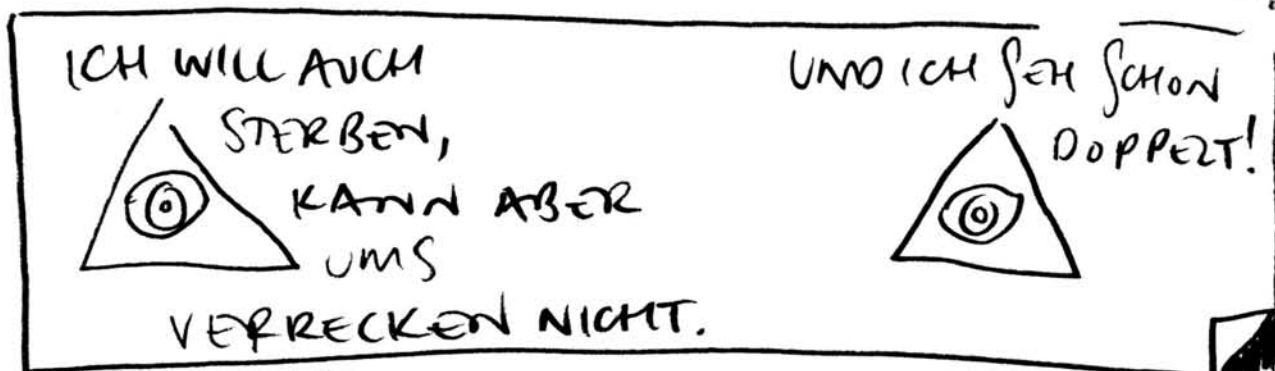 ICH WILL AUCH
STERBEN,
KANN ABER
UMS
VERRECKEN NICHT.
UND ICH SEH SCHON
DOPPELT!